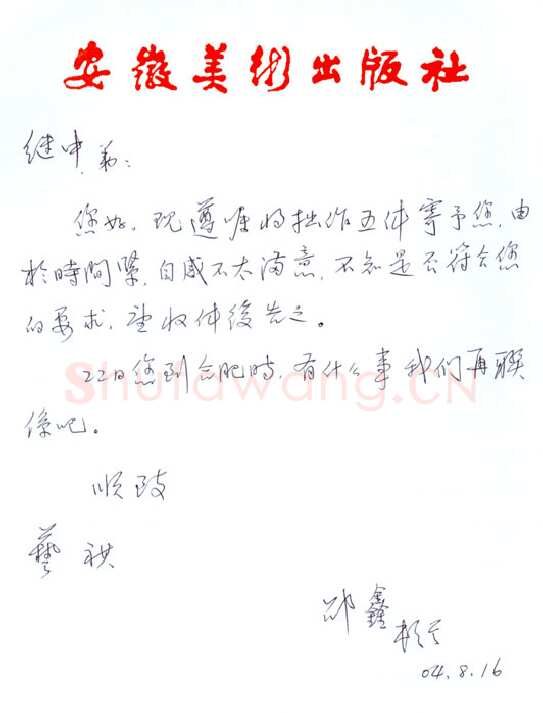 安徽美術出版社
继中弟：
您好，现遵嘱将拙作五件寄予您，由
於時間緊，自感不太满意，不知是否符合您
的要求，望收件後告之。
Shufawang.CN
22日您到合肥时，有什么事我们再聯
係吧。
顺致
藝祺
鑫
04.8.16